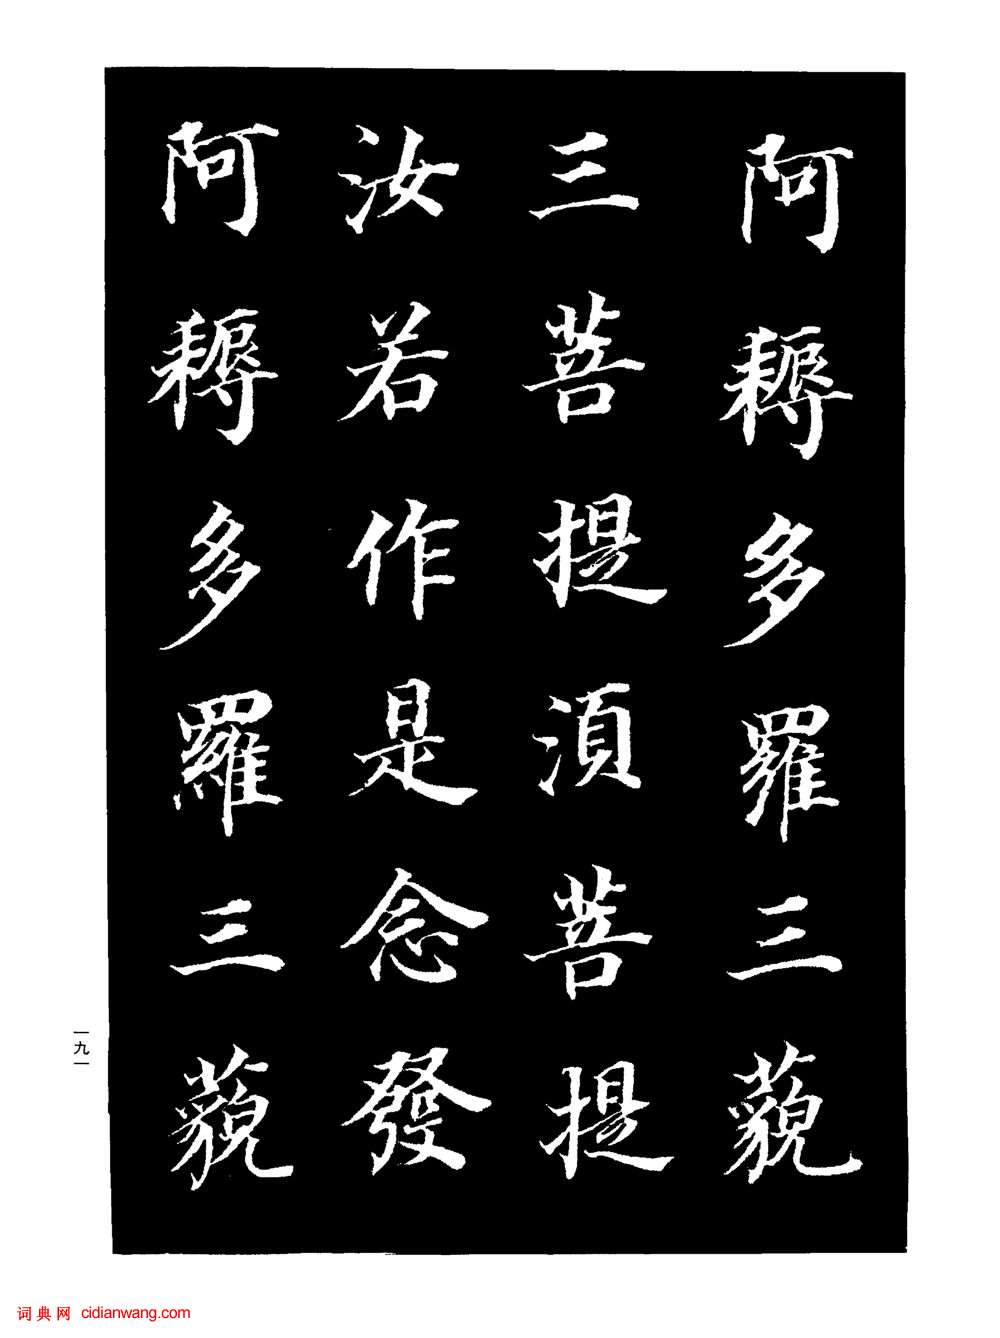 阿耨多羅三藐
三菩提須菩提
汝若作是念發
阿耨多羅三藐
一九一
词典网 cidianwang.com